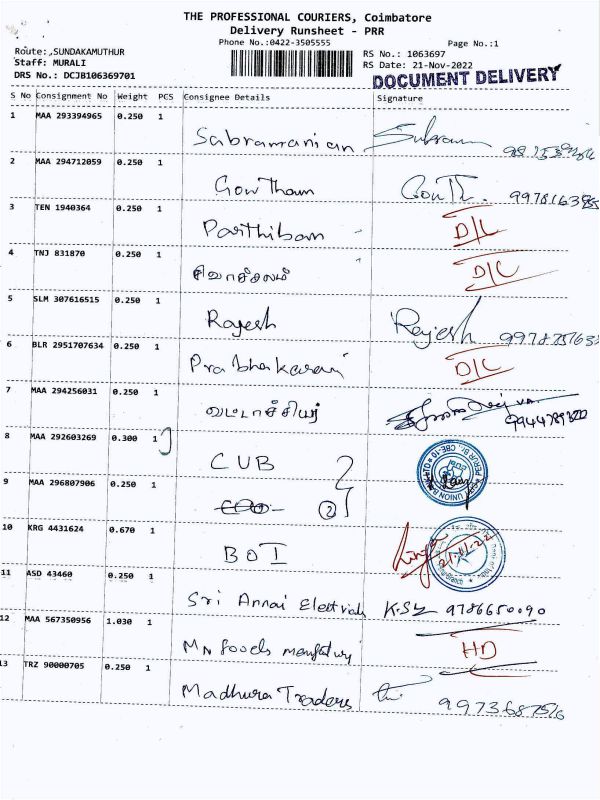 THE PROFESSIONAL COURIERS, Coimbatore
Delivery Runsheet - PRR
Phone No.:0422-3505555 Page No.:1
Route:,SUNDAKAMUTHUR RS No.: 1063697
Staff: MURALI RS Date: 21-Nov-2022
DRS No.: DCJB106369701 DOCUMENT DELIVERY
S No Consignment No Weight PCS Consignee Details Signature
1 MAA 293394965 0.250 1
Sabramanian
2 MAA 294712059 0.250 1
Gowtham
3 TEN 1940364 0.250 1
Parthiban D/C
4 TNJ 831870 0.250 1
D/C
5 SLM 307616515 0.250 1
Rajesh Rajesh
6 BLR 2951707634 0.250 1
Prabhakaran D/C
7 MAA 294256031 0.250 1
வட்டாச்சியர்
8 MAA 292603269 0.300 1
CUB
9 MAA 296807906 0.250 1
2
10 KRG 4431624 0.670 1
BOI
11 ASD 43460 0.250 1
Sri Annai Electricals 9786650090
12 MAA 567350956 1.030 1
MN foods HD
13 TRZ 90000705 0.250 1
Madhura Traders